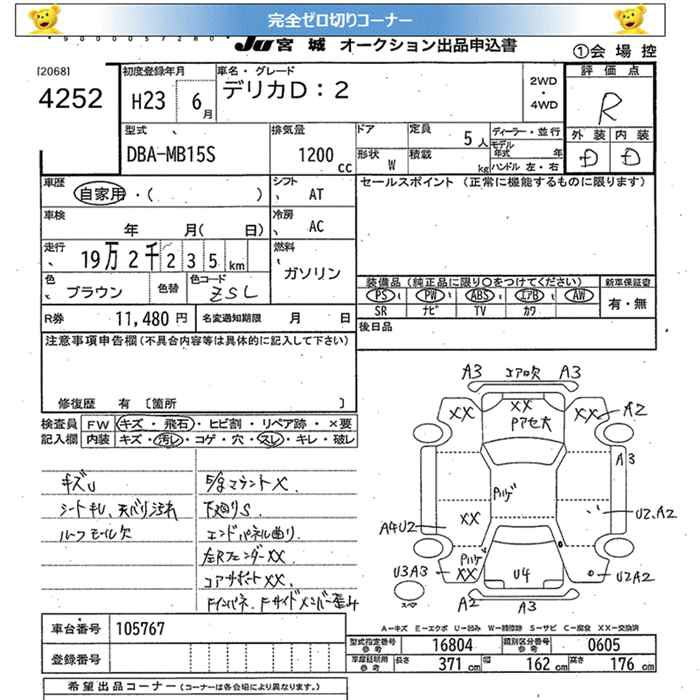 完全ゼロ切りコーナー
Ju宮城 オークション出品申込書
①会場控
[2068]
4252
初度登録年月
H23 6月
車名・グレード
デリカD：2
2WD
・
4WD
評価点
R
外装 内装
D D
型式
DBA-MB15S
排気量
1200 cc
ドア
形状 W
定員 5人
積載 kg
ディーラー・並行
モデル年式 年
ハンドル 左・右
車歴
自家用・( )
シフト AT
セールスポイント (正常に機能するものに限ります)
車検
年 月( 日)
冷房 AC
走行
19万2千235km
燃料
ガソリン
色
ブラウン
色替
色コード
ZSL
装備品 (純正品に限り○をつけてください)
新車保証書
PS PW ABS エアB AW
有・無
SR ナビ TV カワ
R券 11,480円
名変通知期限 月 日
後日品
注意事項申告欄 (不具合内容等は具体的に記入して下さい)
修復歴 有 〔箇所 〕
検査員記入欄
FW キズ・飛石・ヒビ割・リペア跡・×要
内装 キズ・汚レ・コゲ・穴・スレ・キレ・破レ
キズU
ルーフモール欠
下廻りS
エンドパネル曲り
左RフェンダーXX
コアサポートXX
A3 エアロ欠 A3
XX XX XX A2
Pアセ大
A3
Pハゲ
XX
A4U2
U2、A2
Pハゲ
U3A3 XX U4 U2A2
スペア
A2 A3
A－キズ E－エクボ U－凹み W－補修跡 S－サビ C－腐食 XX－交換済
車台番号 105767
登録番号
型式指定番号 参考 16804
類別区分番号 参考 0605
車庫証明用 参考
長さ 371 cm 幅 162 cm 高さ 176 cm
希望出品コーナー (コーナーは各会場により異なります。)